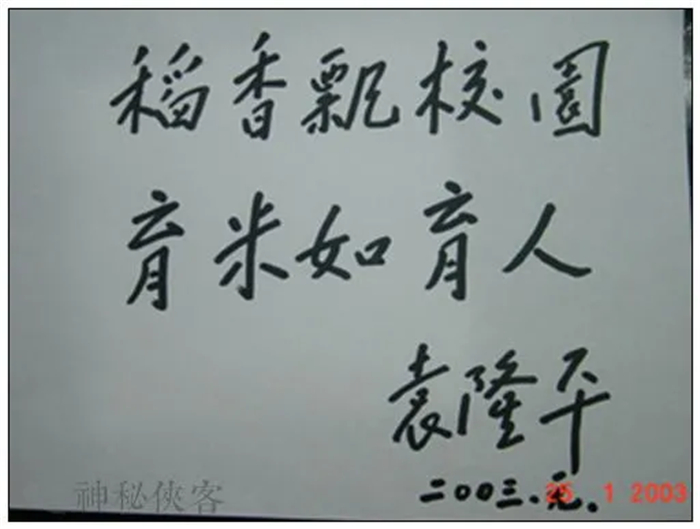 稻香飘校園
育米如育人
袁隆平
二00三.元.
25 1 2003
神秘侠客